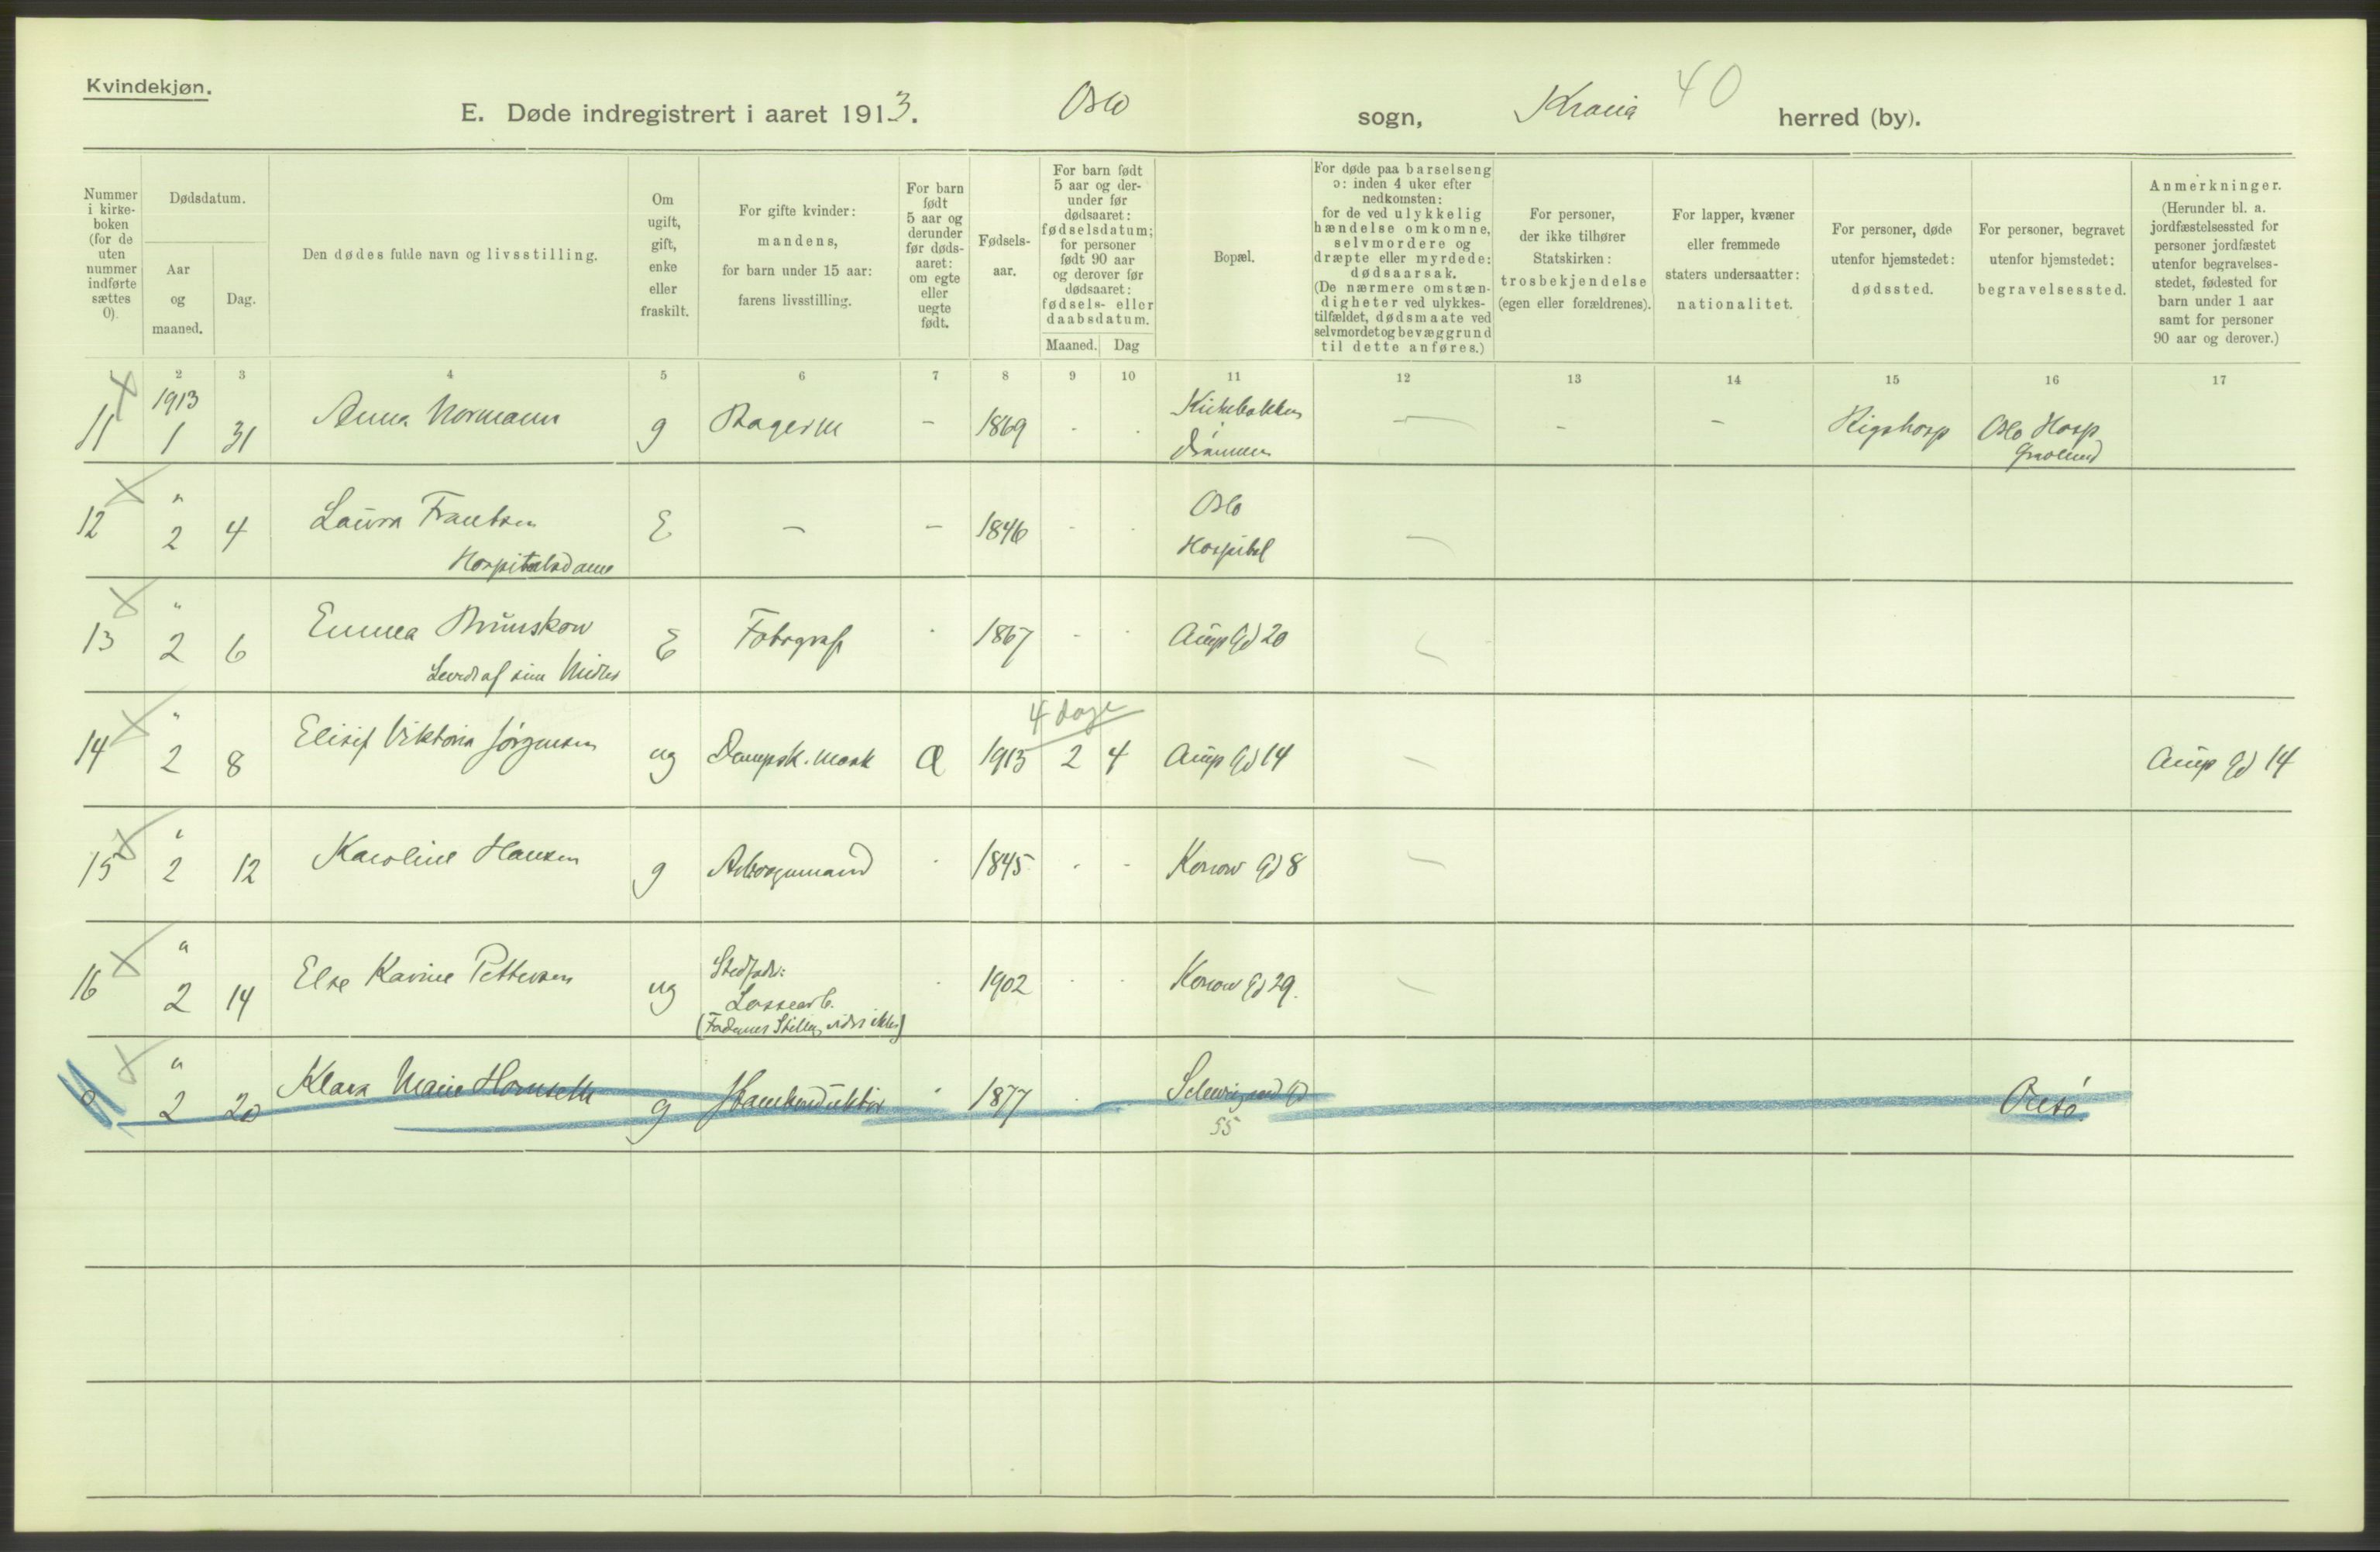 Kvindekjøn.
E. Døde indregistrert i aaret 1913. Oslo sogn, Krania 40 herred (by).
Nummer i kirke-boken (for de uten nummer indførte sættes 0).
Dødsdatum.
Aar og maaned.
Dag.
Den dødes fulde navn og livsstilling.
Om ugift, gift, enke eller fraskilt.
For gifte kvinder: mandens, for barn under 15 aar: farens livsstilling.
For barn født 5 aar og derunder før døds-aaret: om egte eller uegte født.
Fødsels-aar.
For barn født 5 aar og der-under før dødsaaret: fødselsdatum; for personer født 90 aar og derover før dødsaaret: fødsels- eller daabsdatum.
Maaned. Dag
Bopæl.
For døde paa barselseng ɔ: inden 4 uker efter nedkomsten: for de ved ulykkelig hændelse omkomne, selvmordere og dræpte eller myrdede: dødsaarsak. (De nærmere omstæn-digheter ved ulykkes-tilfældet, dødsmaate ved selvmordet og bevæggrund til dette anføres.)
For personer, der ikke tilhører Statskirken: trosbekjendelse (egen eller forældrenes).
For lapper, kvæner eller fremmede staters undersaatter: nationalitet.
For personer, døde utenfor hjemstedet: dødssted.
For personer, begravet utenfor hjemstedet: begravelsessted.
Anmerkninger. (Herunder bl. a. jordfæstelsessted for personer jordfæstet utenfor begravelses-stedet, fødested for barn under 1 aar samt for personer 90 aar og derover.)
1 2 3 4 5 6 7 8 9 10 11 12 13 14 15 16 17
11 1913 1 31 Anna Normann g Bagerm - 1869 Kirkebakken Drammen - - - Rigshosp Oslo Hosp Gravlund
12 " 2 4 Laura Frantsen E - - 1846 Oslo Hospital -
Hospitalsdame
13 " 2 6 Emma E Fotograf 1867 Aups Gd 20
Levede af sine Midler
14 " 2 8 Elisif Viktoria Jørgensen ug Dampsk. mask 1913 4 dage 2 4 Aups Gd 14 - Aups Gd 14
15 " 2 12 Karoline Hansen g 1845 Konow Gd 8 -
16 " 2 14 Else Karine Pettersen ug Stedfader: 1902 Konow Gd 29. -
Lossearb.
(Faderens Stilling vides ikke)
0 " 2 20 Klara Marie g 1877 Gd 55